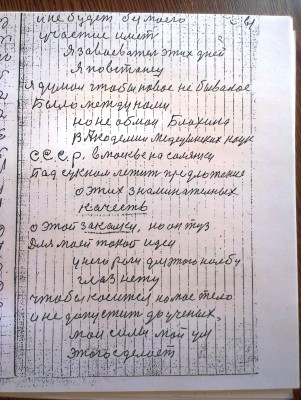 и не будет бумаго
участие имет
Я забываются этих дней
Я повстанцу
я думал чтобы новое не бывалое
было между нами
но не обмои Блахина
в Академии Медецинских наук
С.С.С.р. в москве на солянки
Под сукном лежит предложение
о этих знаминательных
качеств
о этой закалки, но он туз
Для моей такой идеи
у него роли для этого на лбу
глаз нету
чтобы косится на мое тело
и не допустит до ученых,
мои силы мой ум
этого сделает